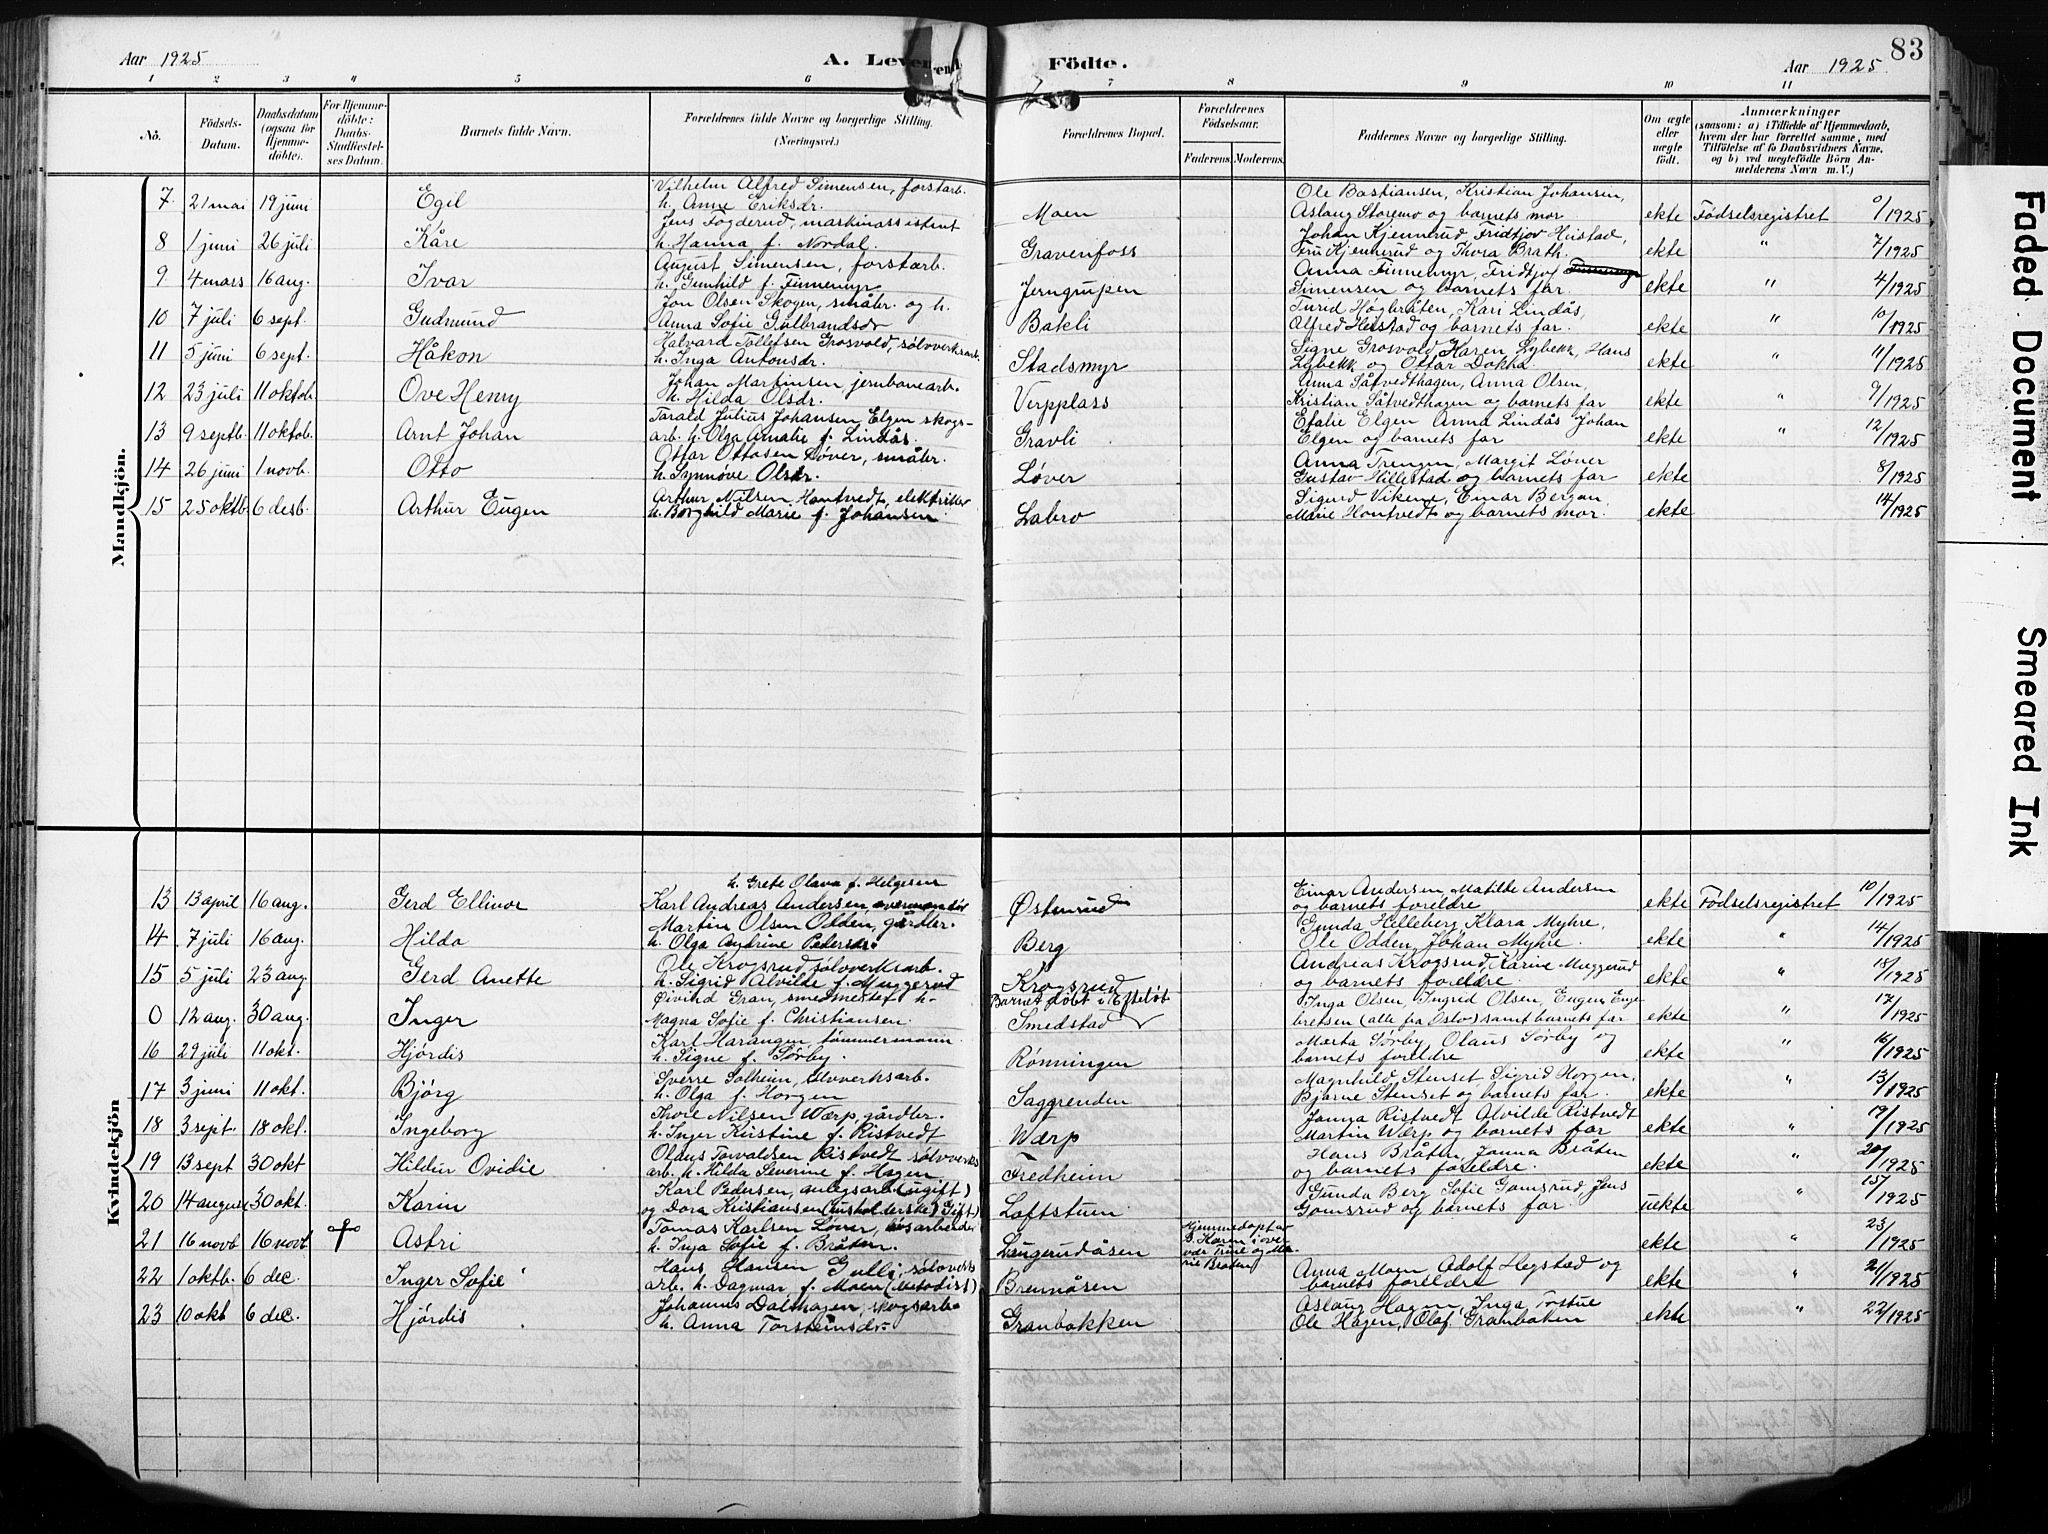 Aar 1925
A. Levende
Födte.
Aar 1925.
83
1 2 3 4 5 6 7 8 9 10 11
No.
Födsels-Datum.
Daabsdatum (ogsaa for Hjemmedöbte).
For Hjemmedöbte: Daabs-Stadfæstelses Datum.
Barnets fulde Navn.
Forældrenes fulde Navne og borgerlige Stilling. (Næringsvei.)
Forældrenes Bopæl.
Forældrenes Födselsaar.
Faderens. Moderens.
Faddernes Navne og borgerlige Stilling.
Om ægte eller uægte födt.
Anmærkninger (saasom: a) i Tilfælde af Hjemmedaab, hvem der har forrettet samme, med Tilföielse af to Daabsvidners Navne, og b) ved uægtefödte Börn Anmelderens Navn m. V.)
Mandkjön.
7. 21 mai 19 juni Egil Vilhelm Alfred Simensen, forstarb. h. Anne Eriksdr. Moen Ole Bastiansen, Kristian Johansen, Aslaug Storemo og barnets mor ekte Födselsregistret 9/1925
8 1 juni 26 juli Kåre Jens Fogderud, maskinassistent h. Hanna f. Nordal. Gravenfoss Johan Kjennerud Fridtjov Heistad, Fru Kjennerud og Thora Bråth. ekte " 7/1925
9 4 mars 16 aug. Ivar August Simensen, forstarb. h. Gunhild f. Finnemyr Jerngrupen Anna Finnemyr, Fridtjof Simensen og barnets far. ekte " 4/1925
10 7 juli 6 sept. Gudmund Jon Olsen Skogen, småbr. og h. Anna Sofie Gulbrandsdr Bakli Turid Høgbråten, Kari Lindås, Alfred Heistad og barnets far. ekte " 10/1925
11 5 juni 6 sept. Håkon Halvard Tollefsen Grosvold, sølvverksarb. h. Inga Antonsdr. Stadsmyr Signe Grosvold, Karen Lybekk, Hans Lybekk og Ottar Dokka. ekte " 11/1925
12 23 juli 11 oktob. Ove Henry Johan Martinsen, jernbanearb. h. Hilda Olsdr. Verpplass Anna Såtvedthagen, Anna Olsen, Kristian Såtvedthagen og barnets far ekte " 9/1925
13 9 septb. 11 oktob. Arnt Johan Tarald Julius Johansen Elgen skogs-arb. h. Olga Amalie f. Lindås. Gravli Efalie Elgen Anna Lindås Johan Elgen og barnets far ekte 12/1925
14 26 juni 1 novb. Otto Ottar Ottosen Løver, småbr. h. Synnøve Olsdr. Løver Anna Trengen, Margit Løver Gustav Hillestad og barnets far ekte 8/1925
15 25 oktb. 6 desb. Arthur Eugen Arthur Nilsen Hontvedt, elektriker h. Borghild Marie f. Johansen Labro Sigurd Vikene, Einar Bergan Marie Hontvedt og barnets mor. ekte 14/1925
Kvindekjön
13 13 april 16 aug. Gerd Ellinor h. Grete Olava f. Helgesen Karl Andreas Andersen, overmontör Østenrud Einar Andersen, Matilde Andersen og barnets foreldre ekte Födselsregistret 10/1925
14 7 juli 16 aug. Hilda Martin Olsen Odden, gårdbr. h. Olga Andrine Pedersdr. Berg Gunda Helleberg Klara Myhre, Ole Odden, Johan Myhre. ekte " 14/1925
15 5 juli 23 aug. Gerd Anette Ole Krogsrud, sølvverksarb. h. Sigrid Alvilde f. Muggerud Krogsrud Andreas Krogsrud, Karine Muggerud og barnets foreldre. ekte " 18/1925
0 12 aug. 30 aug. Inger Øivind Gran, smedmester h. Magna Sofie f. Christiansen. Barnet døbt i Efteløt Smedstad Inga Olsen, Ingrid Olsen, Eugen Engebretsen (alle fra Oslo) samt barnets far ekte " 17/1925
16 29 juli 11 okt. Hjördis Karl Harangen, tømmermann h. Signe f. Sørby. Rønningen Marta Sørby, Olaus Sørby og barnets foreldre ekte " 16/1925
17 3 juni 11 okt. Bjórg Sverre Solheim, sølvverksarb. h. Olga f. Horgen Saggrenden Magnhild Stenset, Sigrid Horgen, Bjarne Stenset og barnets far. ekte " 13/1925
18 3 sept. 18 okt. Ingeborg Thore Nilsen Wærp, gårdbr. h. Inger Kirstine f. Ristvedt Wærp Janna Ristvedt Alvilde Ristvedt Martin Wærp og barnets far ekte " 19/1925
19 13 sept 30 okt Hildur Ovidie Olaus Torvaldsen Ristvedt sølvverksarb. h. Hilda Severine f. Hagen Fredheim Hans Bråten, Janna Bråten og barnets foreldre. ekte " 20/1925
20 14 august 30 okt. Karin Karl Pedersen, anlegsarb. (ugift) og Dora Kristiansen (husholderske) (Gift) Loftstuin Gunda Berg Sofie Gomsrud, Jens Gomsrud og barnets far. uekte " 15/1925
21 16 novb 16 novb ✝ Astri Tomas Karlsen Løver, h. Inga Sofie f. Bråten. Laugerudåsen Hjemmedøpt av ekte 23/1925
22 1 oktb. 6 dec. Inger Sofie Hans Hansen Gulli, sølvverksarb. h. Dagmar, f. Moen (Metodist) Brennåsen Anna Moen Adolf Hegstad og barnets foreldre ekte " 21/1925
23 10 okt 6 dec. Hjórdis Johannes Dalhagen, skogsarb. h. Anna Torsteinsdr. Granbakken Aslaug Hagen, Inga Ole Hagen, Olaf Granbaken ekte " 22/1925
Faded Document
Smeared Ink